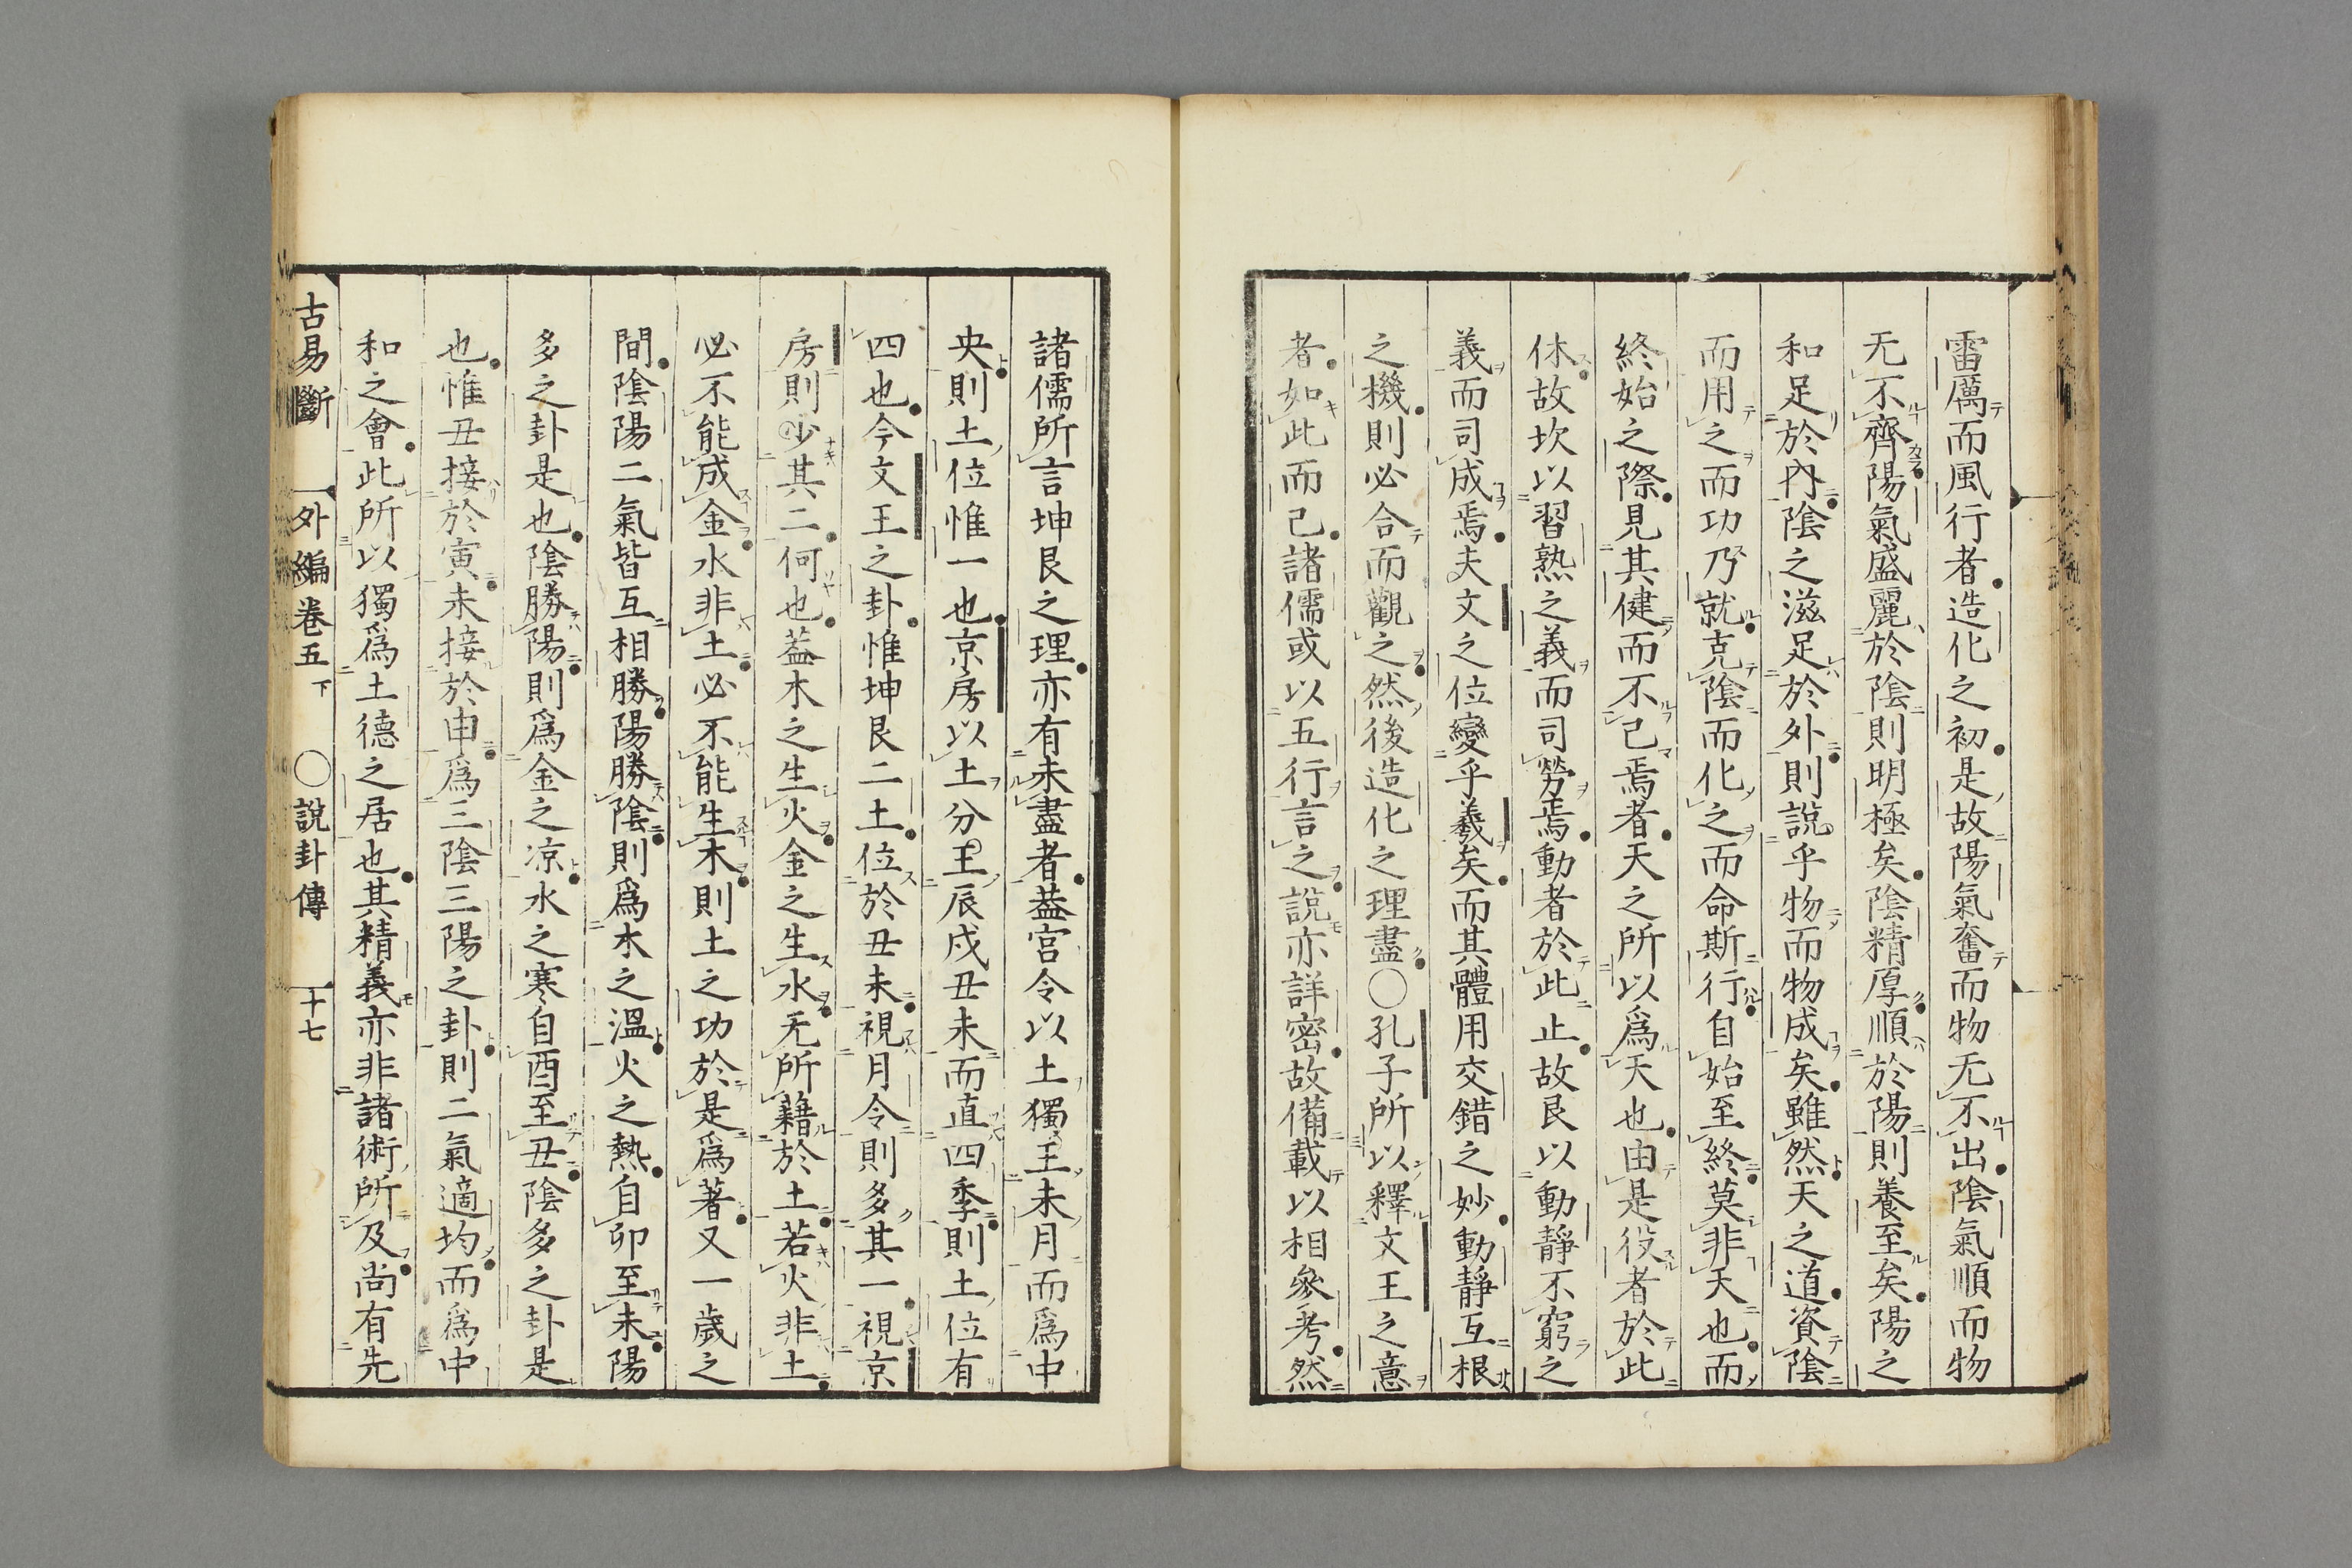 雷厲而風行者造化之初是故陽氣奮而物无不出陰氣順而物
无不齊陽氣盛麗於陰則明極矣陰精厚順於陽則養至矣陽之
和足於內陰之滋足於外則說乎物而物成矣雖然天之道資陰
而用之而功乃就克陰而化之而命斯行自始至終莫非天也而
終始之際見其健而不已焉者天之所以爲天也由是役者於此
休故坎以習熟之義而司勞焉動者於此止故艮以動靜不窮之
義而司成焉夫文之位變乎羲矣而其體用交錯之妙動靜互根
之機則必合而觀之然後造化之理盡〇孔子所以釋文王之意
者如此而已諸儒或以五行言之說亦詳密故備載以相參考然
諸儒所言坤艮之理亦有未盡者葢宮令以土獨王未月而爲中
央則土位惟一也京房以土分王辰戌丑未而直四季則土位有
四也今文王之卦惟坤艮二土位於丑未視月令則多其一視京
房則少其二何也葢木之生火金之生水无所藉於土若火非土
必不能成金水非土必不能生木則土之功於是爲著又一歲之
間陰陽二氣皆互相勝陽勝陰則爲木之溫火之熱自卯至未陽
多之卦是也陰勝陽則爲金之凉水之寒自酉至丑陰多之卦是
也惟丑接於寅未接於申爲三陰三陽之卦則二氣適均而爲中
和之會此所以獨爲土德之居也其精義亦非諸術所及尚有先
古易斷 外編卷五下 〇說卦傳 十七